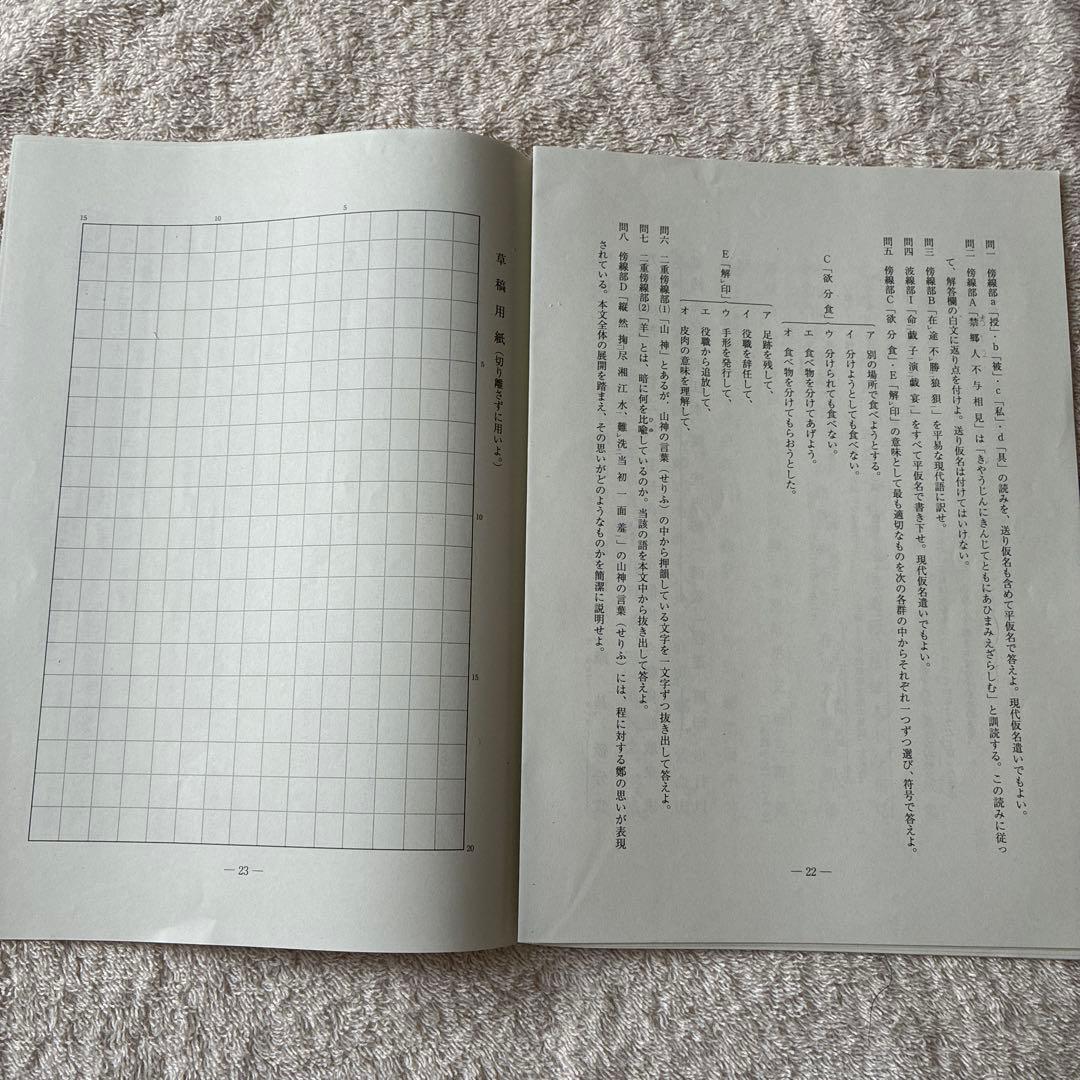 問一 傍線部a「授」・b「被」・c「私」・d「具」の読みを、送り仮名も含めて平仮名で答えよ。現代仮名遣いでもよい。
問二 傍線部A「禁郷人不与相見」は「きやうじんにきんじてともにあひまみえざらしむ」と訓読する。この読みに従っ
て、解答欄の白文に返り点を付けよ。送り仮名は付けてはいけない。
問三 傍線部B「在途不勝狼狽」を平易な現代語に訳せ。
問四 波線部Ⅰ「命戯子演戯宴」をすべて平仮名で書き下せ。現代仮名遣いでもよい。
問五 傍線部C「欲分食」・E「解印」の意味として最も適切なものを次の各群の中からそれぞれ一つずつ選び、符号で答えよ。
C「欲分食」
ア 別の場所で食べようとする。
イ 分けようとしても食べない。
ウ 分けられても食べない。
エ 食べ物を分けてあげよう。
オ 食べ物を分けてもらおうとした。
E「解レ印」
ア 足跡を残して、
イ 役職を辞任して、
ウ 手形を発行して、
エ 役職から追放して、
オ 皮肉の意味を理解して、
問六 二重傍線部⑴「山神」とあるが、山神の言葉(せりふ)の中から押韻している文字を一文字ずつ抜き出して答えよ。
問七 二重傍線部⑵「羊」とは、暗に何を比喩しているのか。当該の語を本文中から抜き出して答えよ。
問八 傍線部D「縦然掬尽湘江水、難洗当初一面羞」の山神の言葉(せりふ)には、程に対する鄭の思いが表現
されている。本文全体の展開を踏まえ、その思いがどのようなものかを簡潔に説明せよ。
— 22 —
草稿用紙(切り離さずに用いよ。)
5
10
15
5
10
15
20
— 23 —